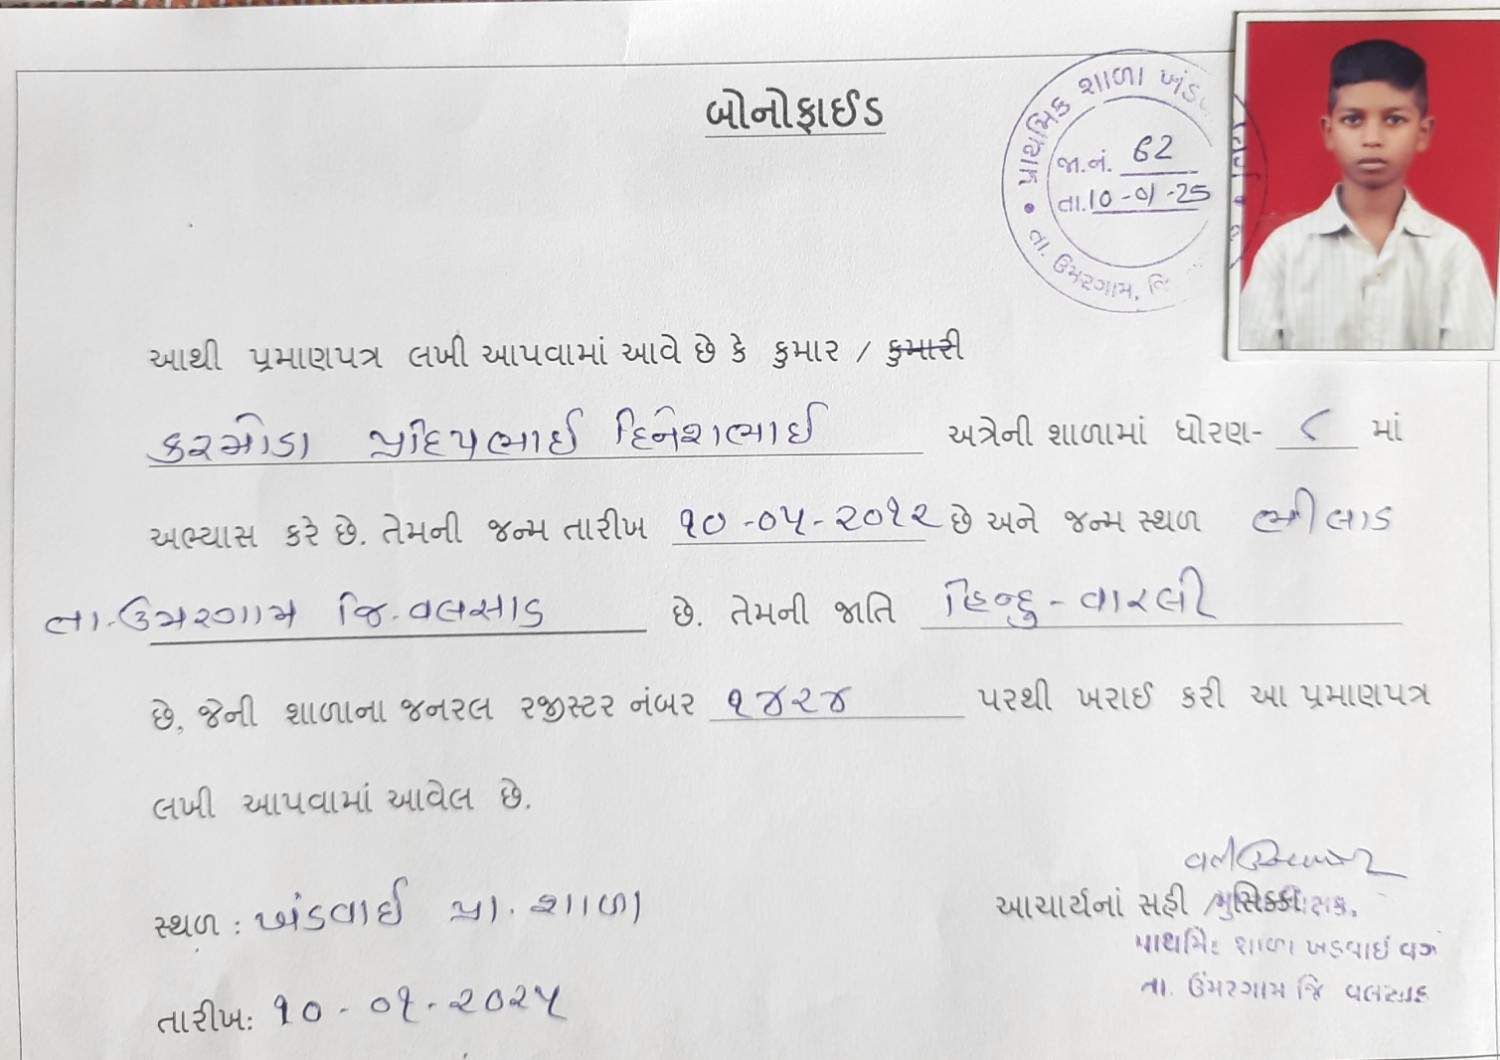 બોનોફાઈડ
પ્રાથમિક શાળા ખંડ
જા.નં. 62
તા. 10-01-25
તા. ઉમરગામ, જિ
આથી પ્રમાણપત્ર લખી આપવામાં આવે છે કે કુમાર / કુમારી
કરમોડા પ્રદિપભાઈ દિનેશભાઈ અત્રેની શાળામાં ધોરણ- ૮ માં
અભ્યાસ કરે છે. તેમની જન્મ તારીખ ૧૦-૦૫-૨૦૧૨ છે અને જન્મ સ્થળ ભીલાડ
તા.ઉમરગામ જિ.વલસાડ છે. તેમની જાતિ હિન્દુ - વારલી
છે, જેની શાળાના જનરલ રજીસ્ટર નંબર ૧૪૨૪ પરથી ખરાઈ કરી આ પ્રમાણપત્ર
લખી આપવામાં આવેલ છે.
સ્થળ : ખંડવાઈ પ્રા. શાળા
આચાર્યનાં સહી / સિક્કા
પ્રાથમિક શાળા ખંડવાઈ
તા. ઉમરગામ જિ વલસાડ
તારીખ: ૧૦-૦૧-૨૦૨૫